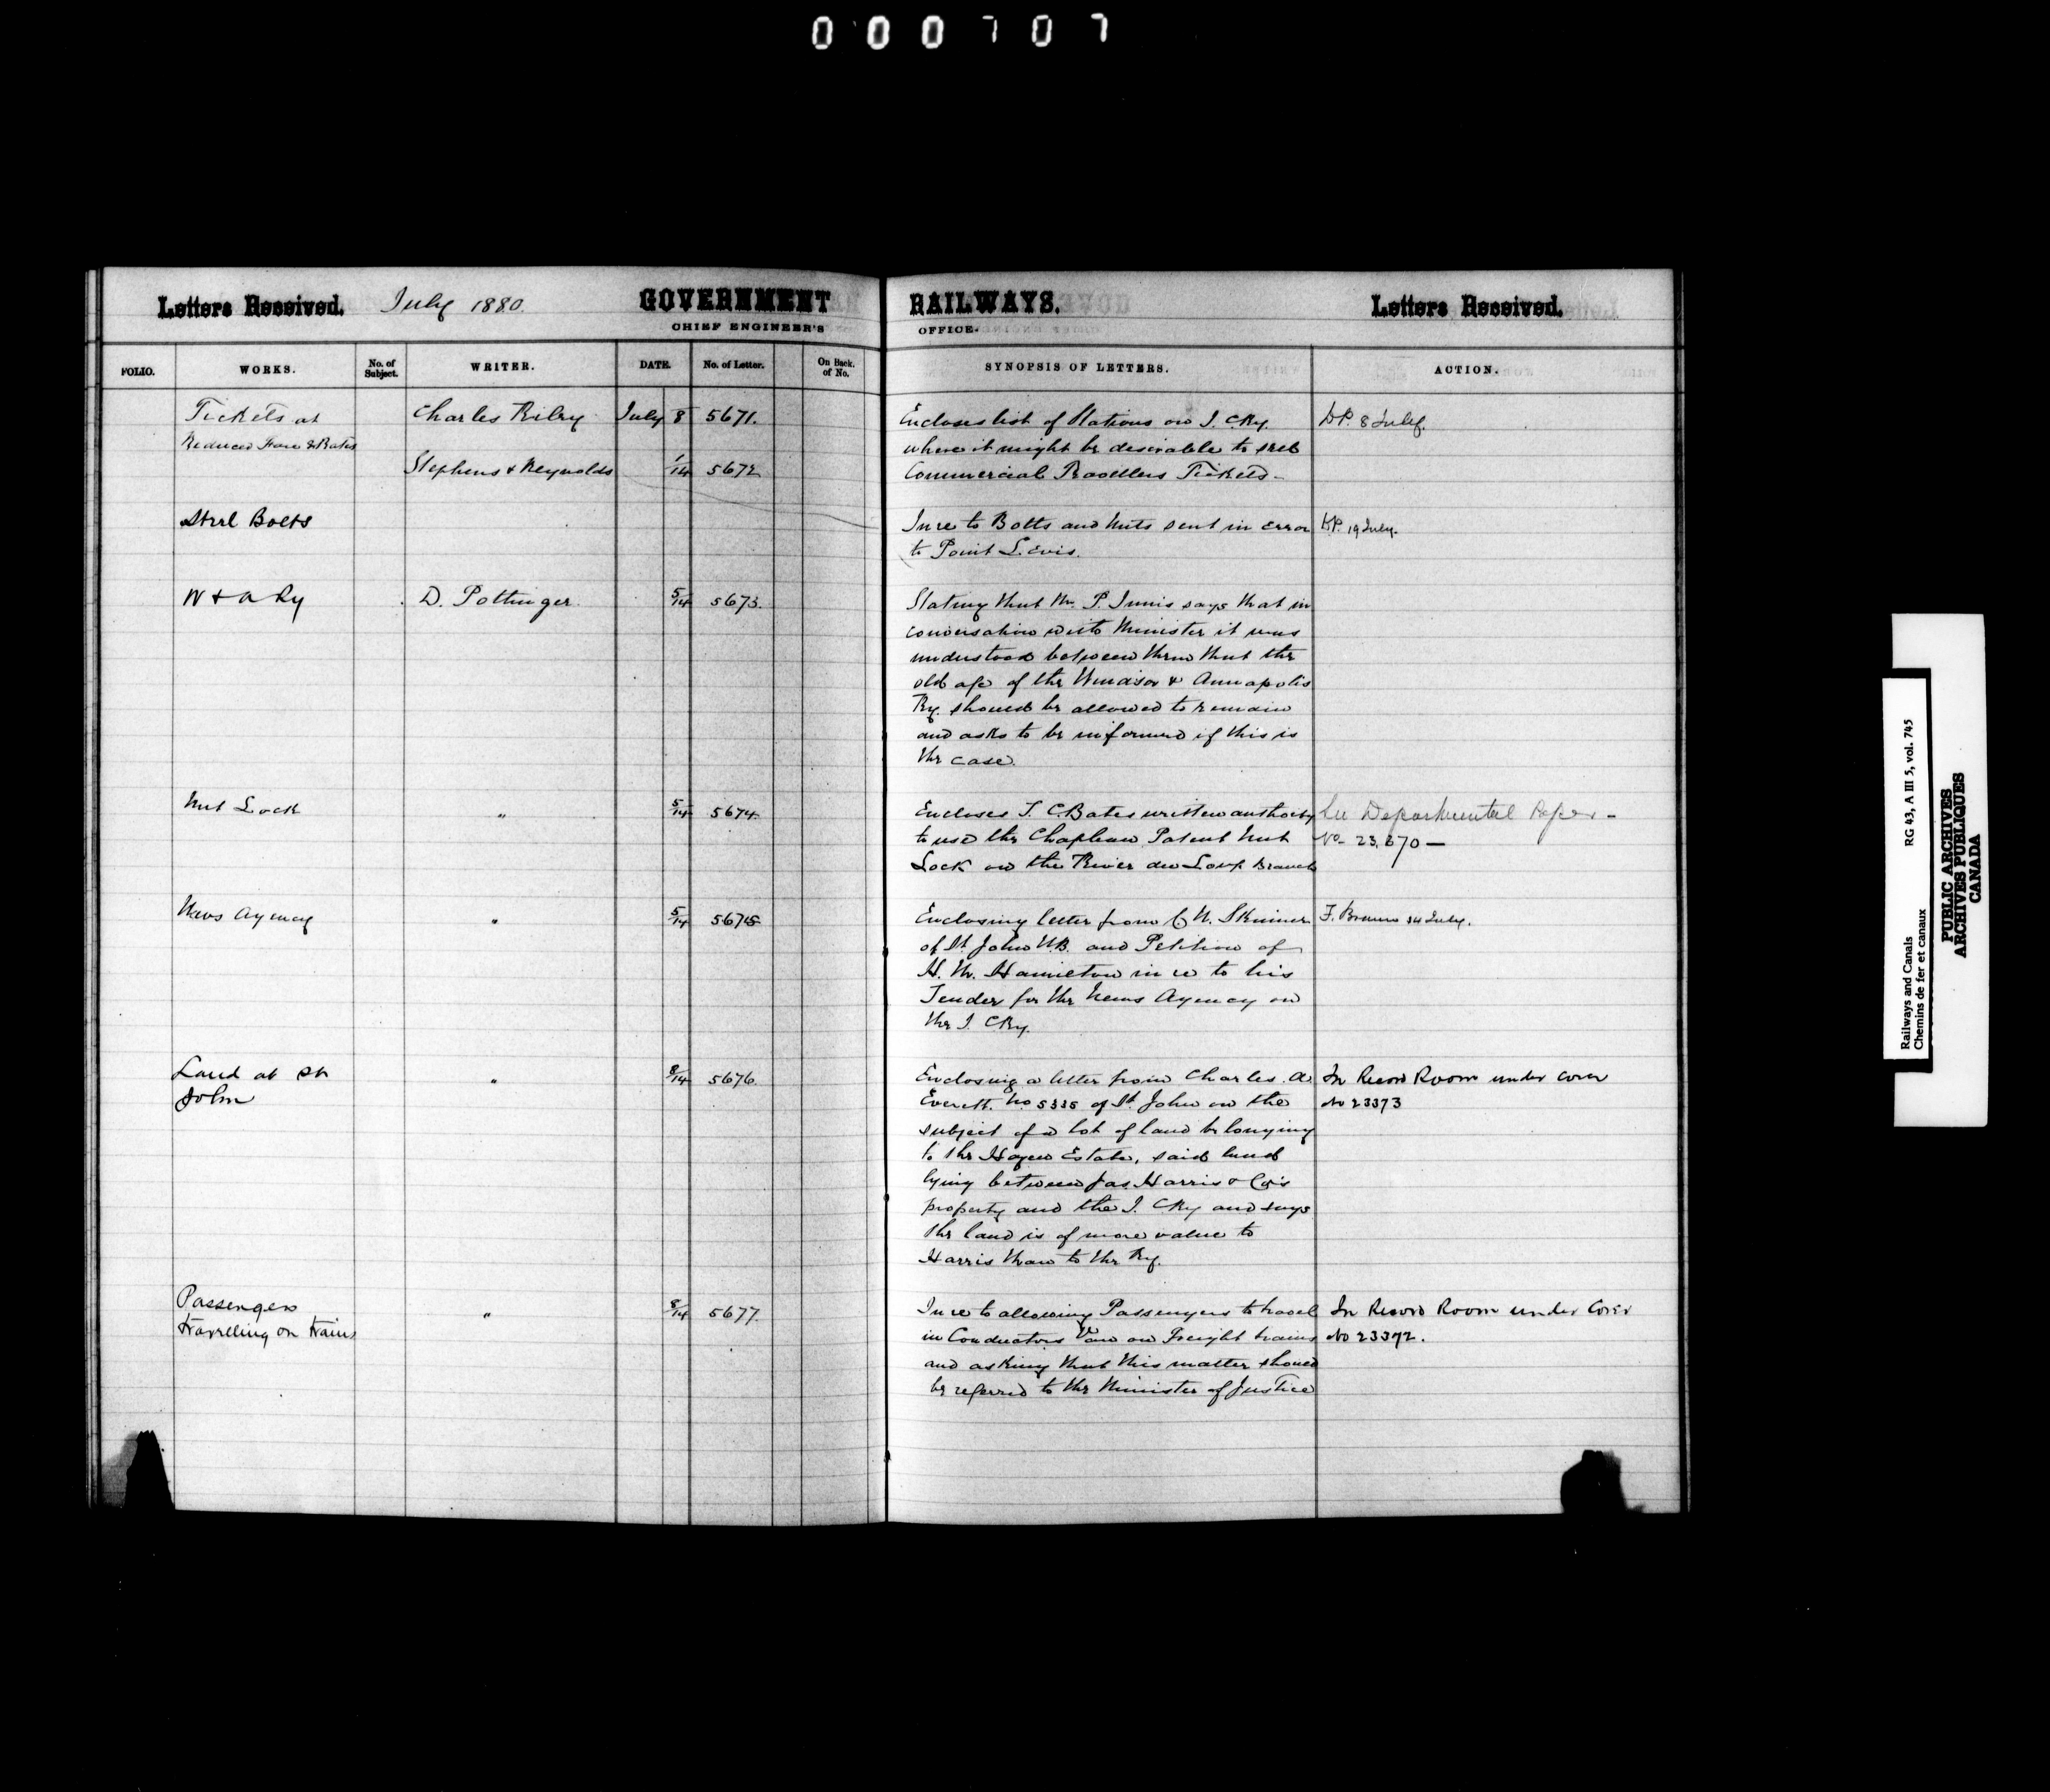 000707
Letters Received. July 1880. GOVERNMENT RAILWAYS. Letters Received.
CHIEF ENGINEER'S OFFICE.
FOLIO. WORKS. No. of Subject. WRITER. DATE. No. of Letter. On Back of No. SYNOPSIS OF LETTERS. ACTION.
Tickets at Charles Riley July 8 5671. Encloses list of Stations on I. C Ry. DP. 8 July.
Reduced Fare & Rates where it might be desirable to sell
Stephens & Reynolds 1/14 5672 Commercial Travellers Tickets-
Steel Bolts In re to Bolts and nuts sent in error DP. 19 July.
to Point Levis.
W & A Ry D. Pottinger. 5/14 5673. Stating that Mr. P. Innis says that in
conversation with Minister it was
understood between them that the
old age of the Windsor & Annapolis
Ry. should be allowed to remain
and asks to be informed if this is
the case.
Nut Lock " 5/14 5674. Encloses T. C. Bates written authority See Departmental Paper -
to use the Chapleau Patent Nut No- 23,670 —
Lock on the River du Loup Branch
News Agency " 5/14 5675 Enclosing letter from C N. Skinner F. Braun 14 July.
of St. John N.B. and Petition of
H. M. Hamilton in re to his
Tender for the News Agency on
the I. C Ry.
Land at St " 8/14 5676. Enclosing a letter from Charles. A In Record Room under cover
John Everett. No 5335 of St. John on the No 23373
subject of a lot of land belonging
to the Hazen Estate, said land
lying between Jas. Harris & Co's
property and the I. C Ry and says
the land is of more value to
Harris than to the Ry.
Passengers " 8/14 5677. In re to allowing Passengers to travel In Record Room under Cover
travelling on trains in Conductors Van on Freight trains No 23372.
and asking that this matter should
be referred to the Minister of Justice
Railways and Canals RG 43, A III 5, vol. 745
Chemins de fer et canaux
PUBLIC ARCHIVES
ARCHIVES PUBLIQUES
CANADA